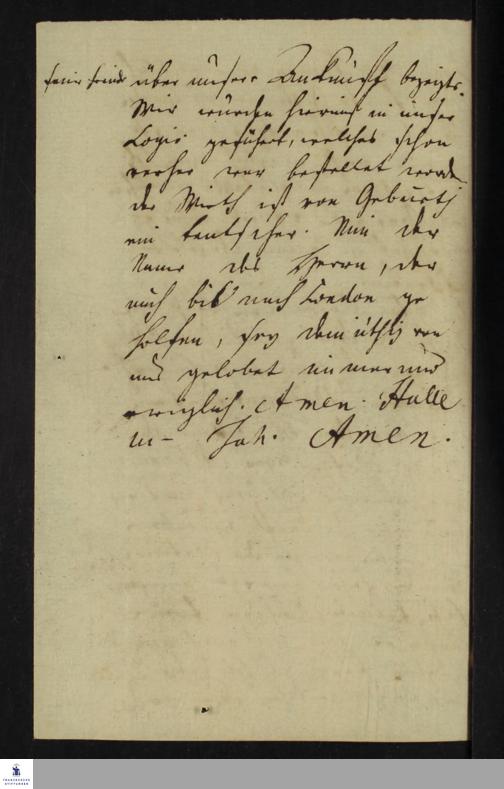 seine Freude über unsere Ankunfft bezeigte.
Wir wurden hierauf in unser
Logis geführt, welches schon
vorher war bestellet worden
der Wirth ist von Geburth
ein teutscher. Nun der
Name des Herrn, der
uns bis nach London ge
holfen, sey demüthig von
uns gelobet immer und
ewiglich. Amen. Halle
lu- Jah. Amen.
FRANCKESCHE
STIFTUNGEN